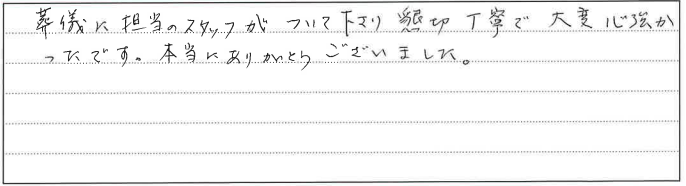 葬儀に担当のスタッフがついて下さり懇切丁寧で大変心強か
ったです。本当にありがとうございました。